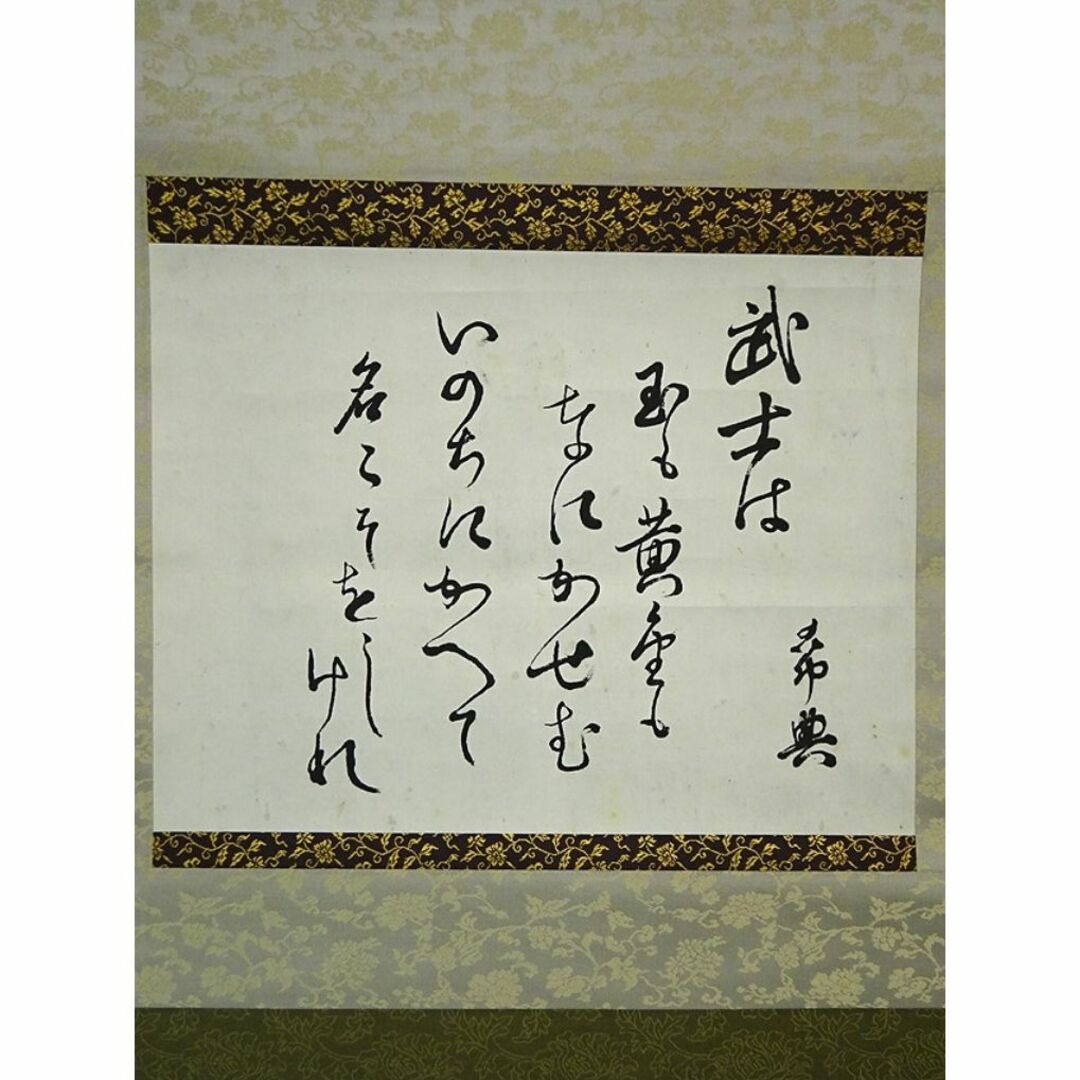 武士は
玉も黄金も
なにかせむ
いのちにかへて
名こそをしけれ
希典